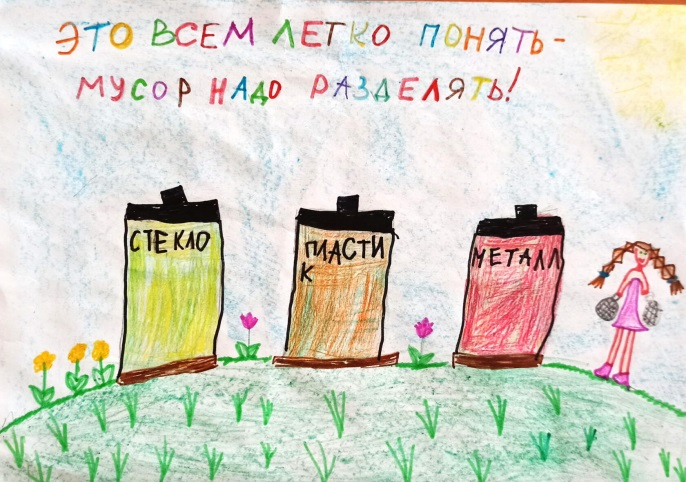 ЭТО ВСЕМ ЛЕГКО ПОНЯТЬ-
МУСОР НАДО РАЗДЕЛЯТЬ!
СТЕКЛО
ПЛАСТИ
К
МЕТАЛЛ